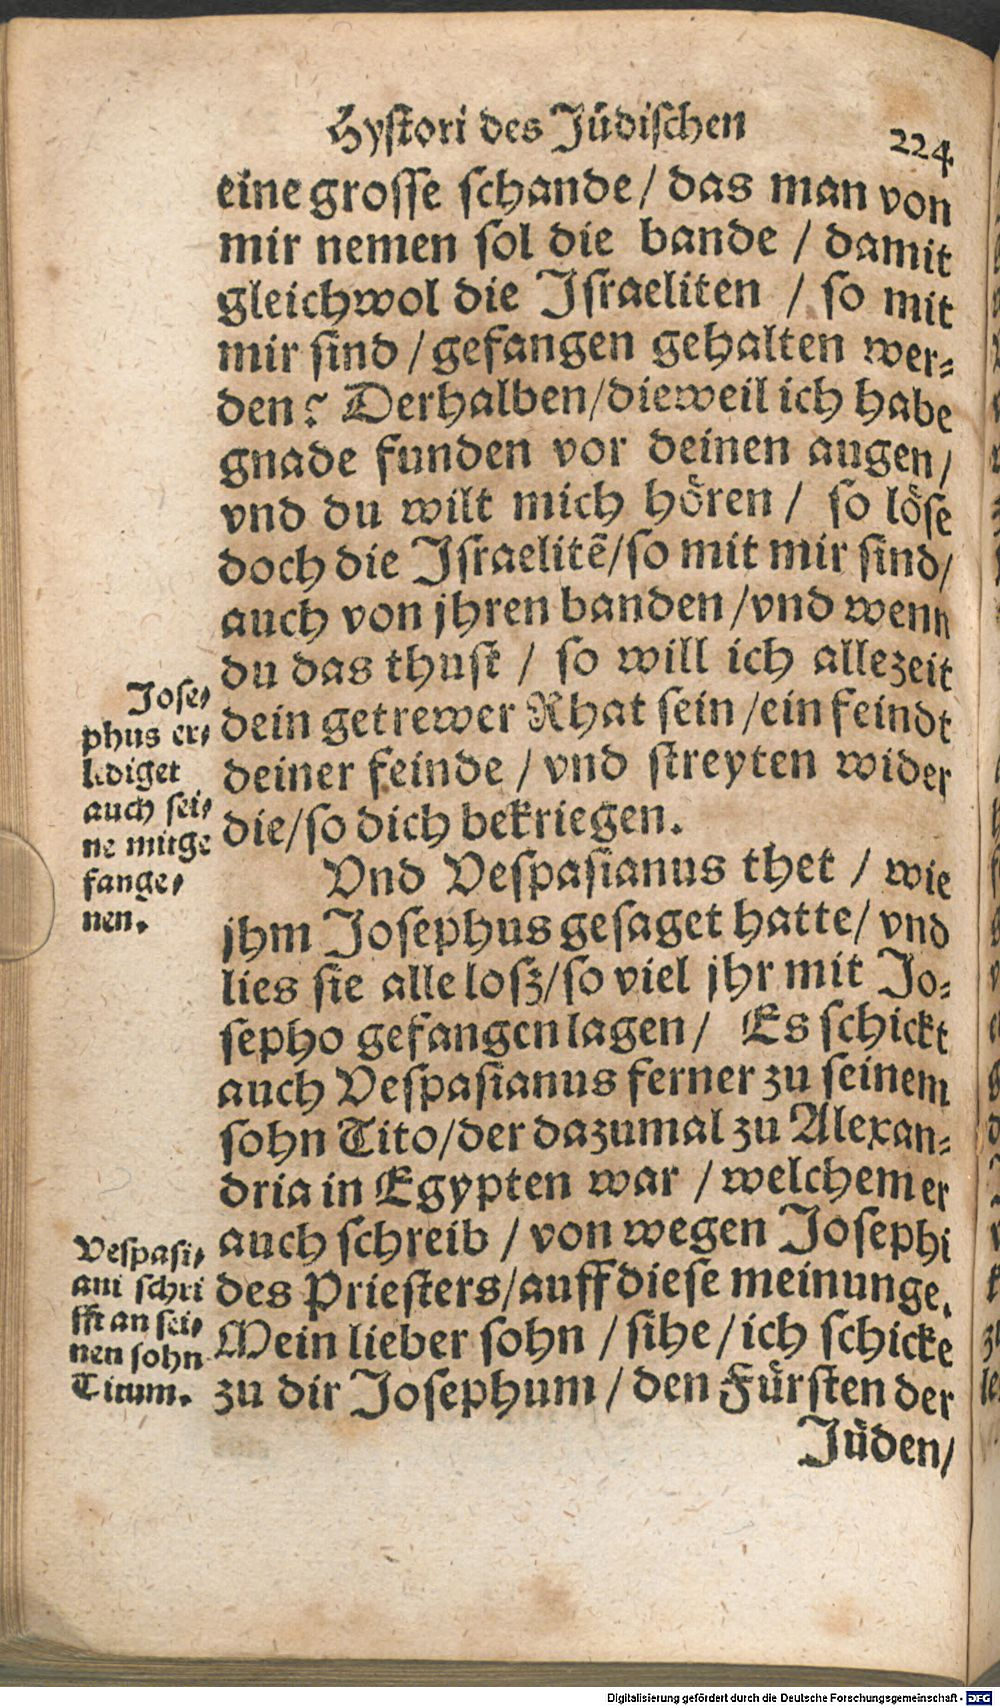 Hystori des Jüdischen
224
eine grosse schande / das man von
mir nemen sol die bande / damit
gleichwol die Israeliten / so mit
mir sind / gefangen gehalten wer⸗
den? Derhalben / dieweil ich habe
gnade funden vor deinen augen /
vnd du wilt mich hören / so löse
doch die Israelitē / so mit mir sind /
auch von jhren banden / vnd wenn
du das thust / so will ich allezeit
dein getrewer Rhat sein / ein feindt
deiner feinde / vnd streyten wider
die / so dich bekriegen.
Jose⸗
phus er⸗
lediget
auch sei⸗
ne mitge
fange⸗
nen.
Vnd Vespasianus thet / wie
jhm Josephus gesaget hatte / vnd
lies sie alle losz / so viel jhr mit Jo⸗
sepho gefangen lagen / Es schickt
auch Vespasianus ferner zu seinem
sohn Tito / der dazumal zu Alexan⸗
dria in Egypten war / welchem er
auch schreib / von wegen Josephi
des Priesters / auff diese meinunge.
Mein lieber sohn / sihe / ich schicke
zu dir Josephum / den Fürsten der
Vespasi⸗
ani schri
fft an sei⸗
nen sohn
Titum.
Jüden /
Digitalisierung gefördert durch die Deutsche Forschungsgemeinschaft - DFG